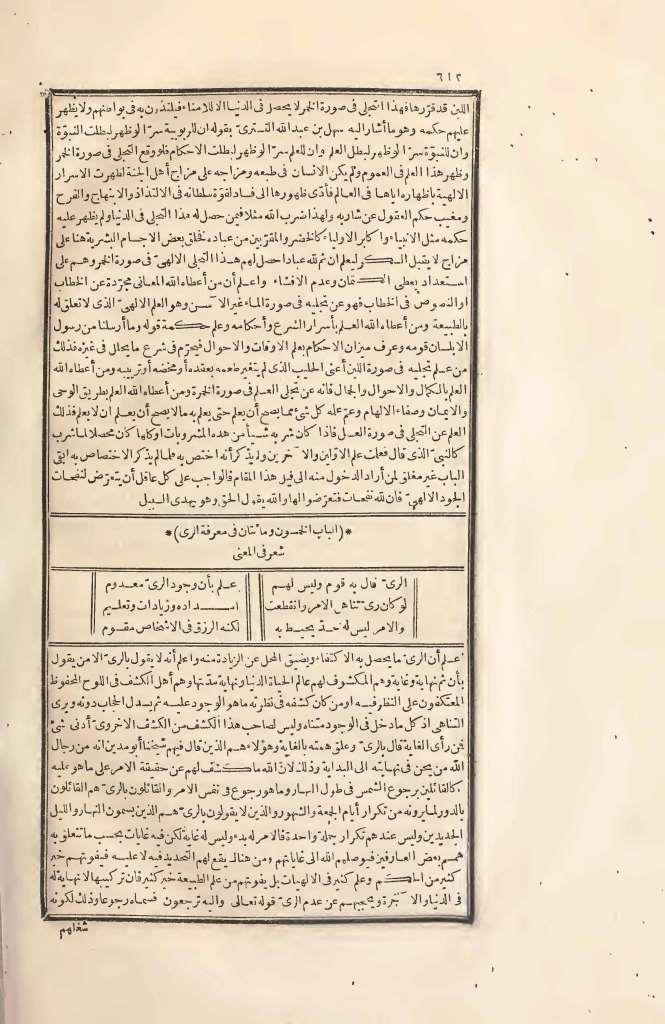 ٦١٢
اللبن قد قررها فهذا التجلي في صورة الخمر لا يحصل في الدنيا الا للامناء فيلتذون به في بواطنهم ولا يظهر
عليهم حكمه وهو ما أشار اليه سهل بن عبد الله التسترى بقوله ان للربوبية سرّ الو ظهر لبطلت النبوّة
وان للنبوّة سرّ الو ظهر لبطل العلم وان للعلم سرّ الو ظهر لبطلت الاحكام فلو وقع التجلى في صورة الخمر
وظهر هذا العلم في العموم ولم يكن الانسان في طبعه ومزاجه على مزاج أهل الجنة لظهرت الاسرار
الالهية باظهاره اياها في العالم فأدّى ظهورها الى فساد لقوّة سلطانه في الالتذاذ والابتهاج والفرح
ومغيب حكم العقول عن شاربه ولهذا ضرب الله مثلا فين حصل له هذا التجلي في الدنيا ولم يظهر عليه
حكمه مثل الانبياء واكابر الاولياء كالخضر والمقرّبين من عباده فخلق بعض الاجسام البشرية هنا على
مزاج لا يقبل السكر ليعلم ان ثم لله عبادا حصل لهم هذا التجلى الالهىّ في صورة الخمر وهم على
استعداد يعطى الكتمان وعدم الافشاء واعلم أن من أعطاه الله المعاني مجرّدة عن الخطاب
او النصوص في الخطاب فهو عن تجليه في صورة الماء غير الآسن وهو العلم الالهىّ الذى لا تعلق له
بالطبيعة ومن أعطاه الله العلم بأسرار الشرع وأحكامه وعلم حكمة قوله وما أرسلنا من رسول
الا بلسان قومه وعرف ميزان الاحكام بعلم الاوقات والاحوال فيحرّم في شرع ما يحلل في غيره فذلك
من علم تجليه في صورة اللبن أعنى الحليب الذى لم يتغير طعمه بعقده أو مخضه أو تربيبه ومن أعطاه الله
العلم بالكمال والاحوال والجمال فانه عن تجلى العلم في صورة الخمرة ومن أعطاه الله العلم بطريق الوحى
والايمان وصفاء الالهام وعمّ علمه كل شئ مما يصح أن يعلم حتى يعلم به مالا يصح أن يعلم ان لا يعلم فذلك
العلم عن التجلى في صورة العسل فاذا كان شربه شيأ من هذه المشروبات او كلها كان محصلا لما شرب
كالنبىّ الذى قال فعلمت علم الاوّلين والآخرين ولم يذكر أنه اختص به فلما لم يذكر الاختصاص به ابقى
الباب غير مغلق لمن أراد الدخول منه الى قبل هذا المقام فالواجب على كل عاقل أن يتعرّض لنفحات
الجود الالهىّ فان لله نفحات فتعرّضوا لها والله يقول الحق وهو يهدى السبيل
*(الباب الخمسون ومائتان في معرفة الرى)*
شعر في المعنى
الرىّ قال به قوم وليس لهم علم بأن وجود الرىّ معدوم
لو كان رىّ تناهى الامر وانقطعت امداده وزيادات وتعليم
والامر ليس له حدّ يحيط به لكنه الرزق في الاشخاص مقسوم
اعلم أن الرىّ ما يحصل به الاكتفاء ويضيق المحل عن الزيادة منه واعلم أنه لا يقول بالرىّ الا من يقول
بأن ثم نهاية وغاية وهم المكشوف لهم عالم الحياة الدنيا ونهاية مدّتها وهم أهل الكشف في اللوح المحفوظ
المعتكفون على النظر فيه او من كان كشفه في نظرته ما هو الوجود عليه ثم يسدل الحجاب دونه ويرى
التناهى اذ كل ما دخل في الوجود متناه وليس لصاحب هذا الكشف من الكشف الاخروى أدنى شئ
فمن رأى الغاية قال بالرىّ وعلق همته بالغاية وهؤلاء هم الذين قال فيهم شيخنا أبو مدين انه من رجال
الله من يحن في نهايته الى البداية وذلك لان الله ما كشف لهم عن حقيقة الامر على ما هو عليه
كالقائلين برجوع الشمس في طول النهار وما هو رجوع في نفس الامر والقائلون بالرىّ هم القائلون
بالدور لما يرونه من تكرار أيام الجمعة والشهور والذين لا يقولون بالرىّ هم الذين يسمون النهار والليل
الجديدين وليس عندهم تكرار جملة واحدة فالامر له بدء وليس له غاية لكن فيه غايات بحسب ما تتعلق به
همم بعض العارفين فيوصلهم الله الى غاياتهم ومن هناك يقع لهم التحديد فيه لا عليه فيفوتهم خير
كثير من الحكم وعلم كثير في الالهيات بل يفوتهم من علم الطبيعة خير كثير فان تركيبها لا نهاية له
في الدنيا والآخرة ويحجبهم عن عدم الرىّ قوله تعالى واليه ترجعون فسماه رجوعا وذلك لكونه
شغلهم